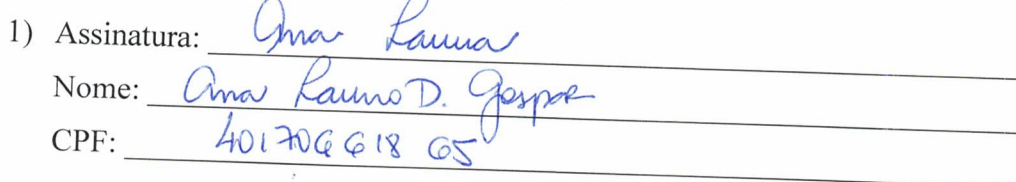 1) Assinatura: Ana Laura
Nome: Ana Laura D. Gaspar
CPF: 401706618 65